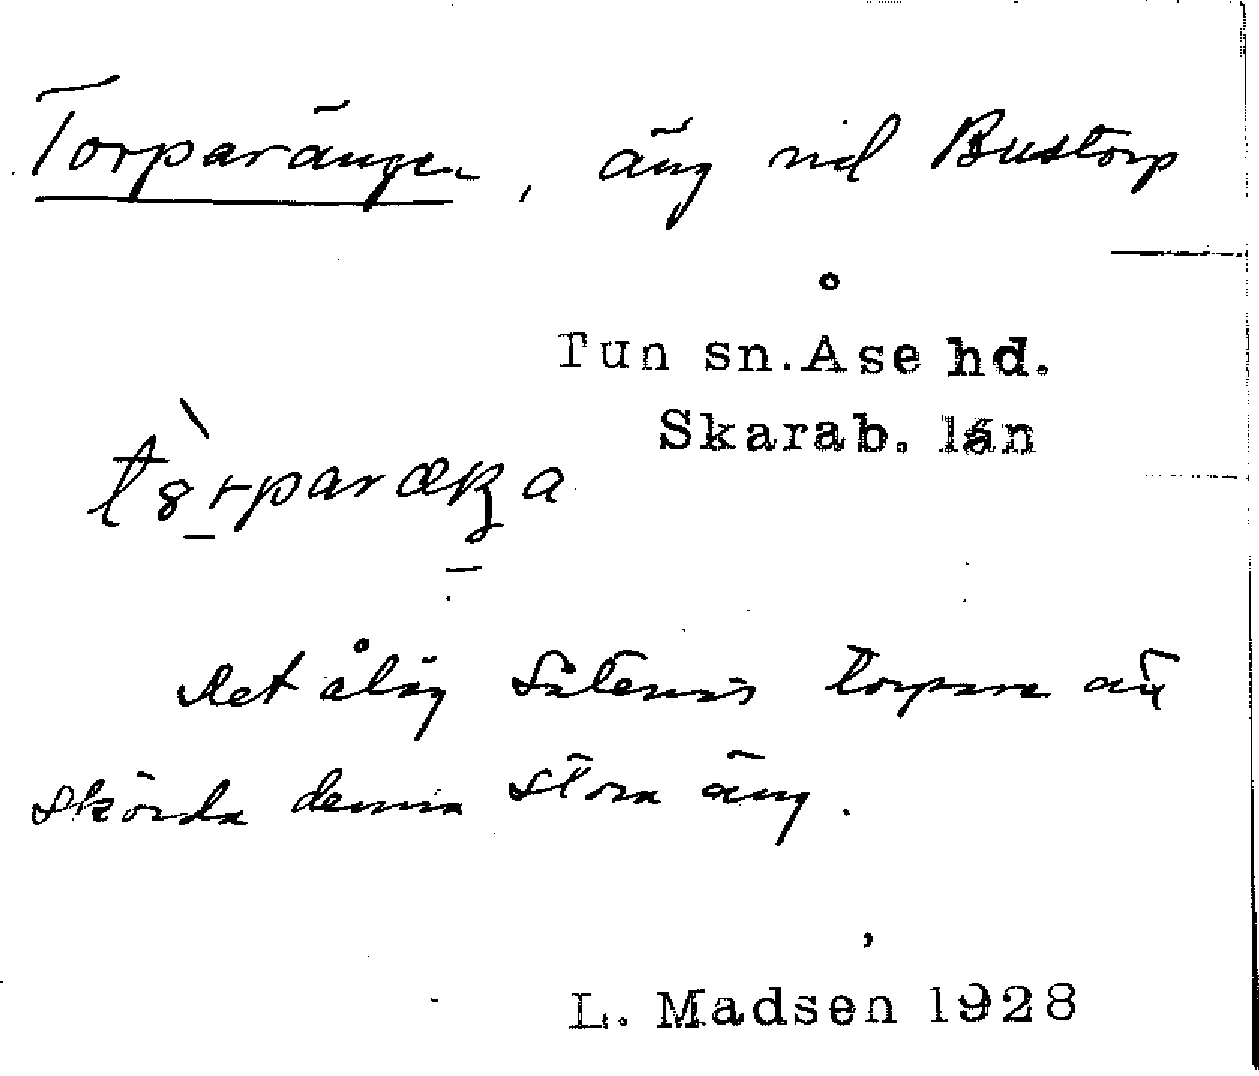 Torparängen, äng vid Bustorp
Tun sn. Åse hd.
Skarab. län
Det ålåg Såtenäs torpare att
skörda denna stora äng.
L. Madsen 1928